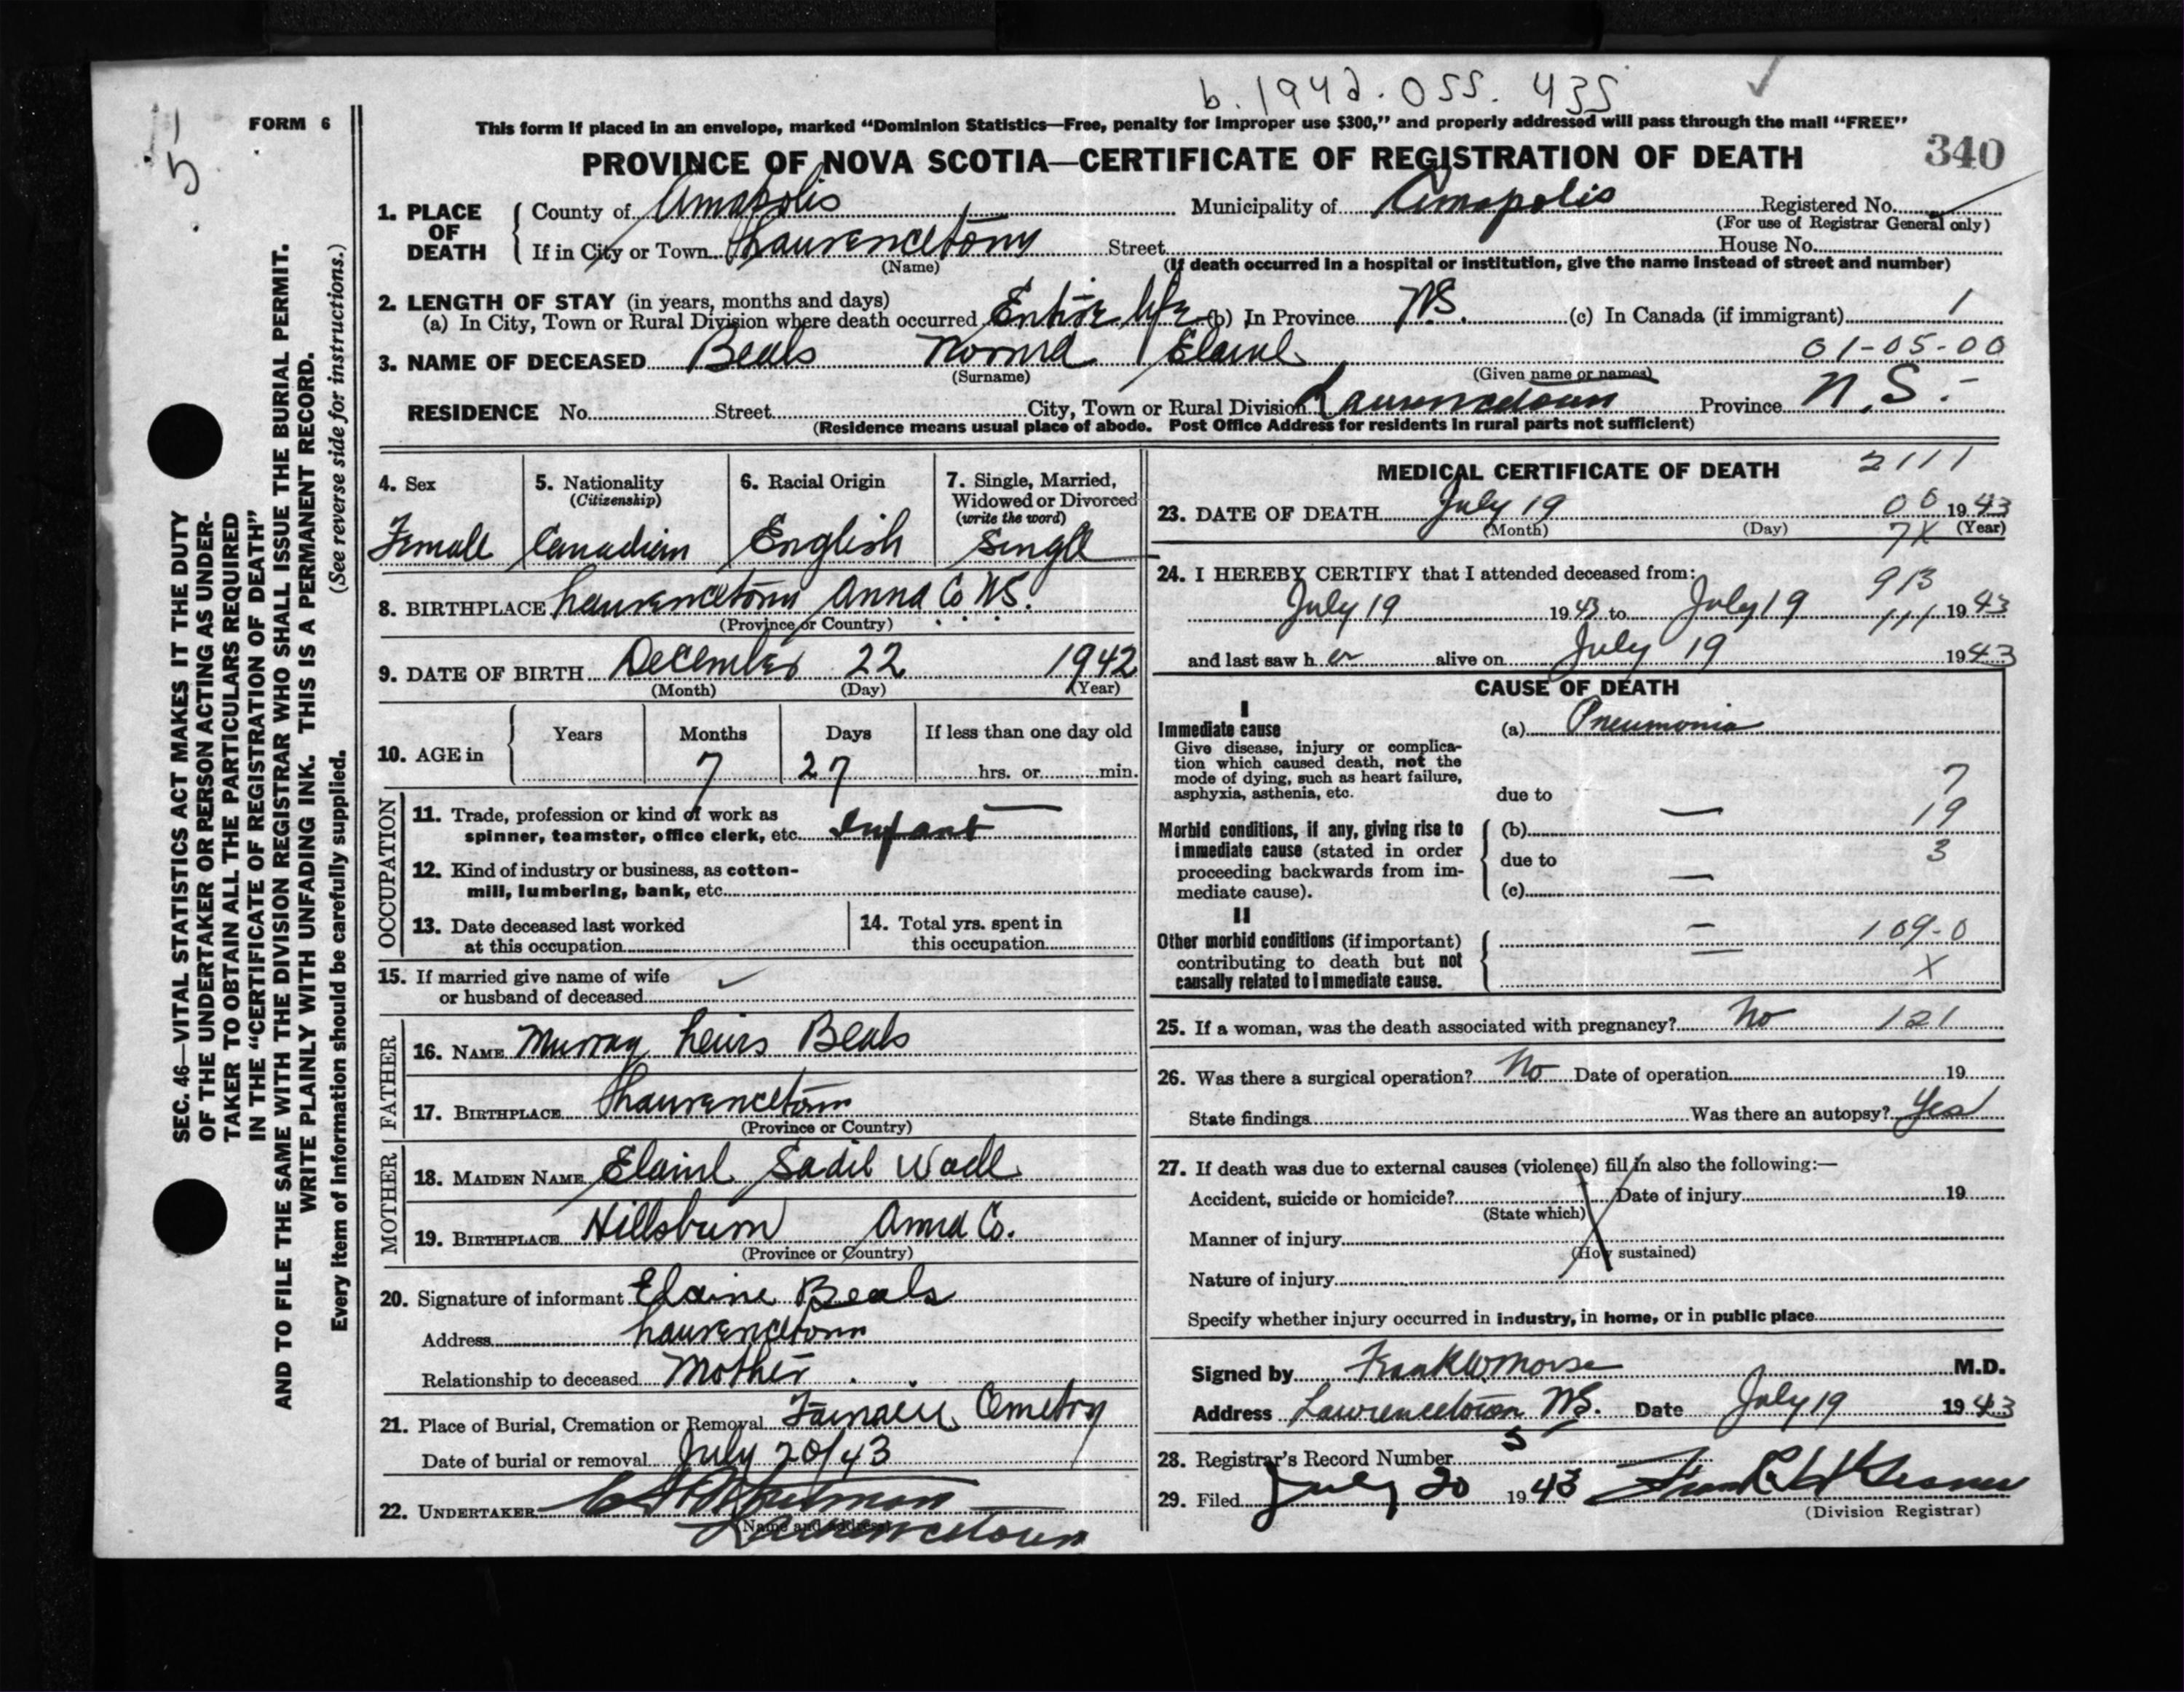 b. 1942. 055. 435
5
FORM 6
This form if placed in an envelope, marked “Dominion Statistics—Free, penalty for improper use $300,” and properly addressed will pass through the mail “FREE”
PROVINCE OF NOVA SCOTIA—CERTIFICATE OF REGISTRATION OF DEATH
340
1. PLACE OF DEATH
County of Annapolis Municipality of Annapolis Registered No.
(For use of Registrar General only)
If in City or Town Lawrencetown Street House No.
(Name) (If death occurred in a hospital or institution, give the name instead of street and number)
2. LENGTH OF STAY (in years, months and days)
(a) In City, Town or Rural Division where death occurred Entire life (b) In Province N.S. (c) In Canada (if immigrant) 1
3. NAME OF DECEASED Beals Norma Elaine 01-05-00
(Surname) (Given name or names)
RESIDENCE No. Street City, Town or Rural Division Lawrencetown Province N.S.-
(Residence means usual place of abode. Post Office Address for residents in rural parts not sufficient)
4. Sex
Female
5. Nationality
(Citizenship)
Canadian
6. Racial Origin
English
7. Single, Married,
Widowed or Divorced
(write the word)
Single
8. BIRTHPLACE Lawrencetown Anna Co NS.
(Province or Country)
9. DATE OF BIRTH December 22 1942
(Month) (Day) (Year)
10. AGE in
Years Months Days If less than one day old
7 27 hrs. or min.
OCCUPATION
11. Trade, profession or kind of work as
spinner, teamster, office clerk, etc. Infant
12. Kind of industry or business, as cotton-
mill, lumbering, bank, etc.
13. Date deceased last worked
at this occupation
14. Total yrs. spent in
this occupation
15. If married give name of wife
or husband of deceased
FATHER
16. NAME Murray Lewis Beals
17. BIRTHPLACE Lawrencetown
(Province or Country)
MOTHER
18. MAIDEN NAME Elaine Sadie Wade
19. BIRTHPLACE Hillsburn Anna Co.
(Province or Country)
20. Signature of informant Elaine Beals
Address Lawrencetown
Relationship to deceased Mother
21. Place of Burial, Cremation or Removal Cemetry
Date of burial or removal July 20/43
22. UNDERTAKER
(Name and address)
Lawrencetown
MEDICAL CERTIFICATE OF DEATH 2111
23. DATE OF DEATH July 19 00 1943
(Month) (Day) 7X (Year)
24. I HEREBY CERTIFY that I attended deceased from: 913
July 19 1943 to July 19 111 1943
and last saw h er alive on July 19 1943
CAUSE OF DEATH
I
Immediate cause
Give disease, injury or complica-
tion which caused death, not the
mode of dying, such as heart failure,
asphyxia, asthenia, etc.
(a) Pneumonia
7
due to
19
Morbid conditions, if any, giving rise to
immediate cause (stated in order
proceeding backwards from im-
mediate cause).
(b)
3
due to
(c)
II
Other morbid conditions (if important)
contributing to death but not
causally related to immediate cause.
109-0
X
25. If a woman, was the death associated with pregnancy? No 121
26. Was there a surgical operation? No Date of operation 19
State findings Was there an autopsy? Yes
27. If death was due to external causes (violence) fill in also the following:—
Accident, suicide or homicide? Date of injury 19
(State which)
Manner of injury
(How sustained)
Nature of injury
Specify whether injury occurred in industry, in home, or in public place
Signed by Frank W Morse M.D.
Address Lawrencetown NS. Date July 19 1943
28. Registrar's Record Number 5
29. Filed July 20 1943
(Division Registrar)
SEC. 46—VITAL STATISTICS ACT MAKES IT THE DUTY
OF THE UNDERTAKER OR PERSON ACTING AS UNDER-
TAKER TO OBTAIN ALL THE PARTICULARS REQUIRED
IN THE “CERTIFICATE OF REGISTRATION OF DEATH”
AND TO FILE THE SAME WITH THE DIVISION REGISTRAR WHO SHALL ISSUE THE BURIAL PERMIT.
WRITE PLAINLY WITH UNFADING INK. THIS IS A PERMANENT RECORD.
Every item of information should be carefully supplied. (See reverse side for instructions.)